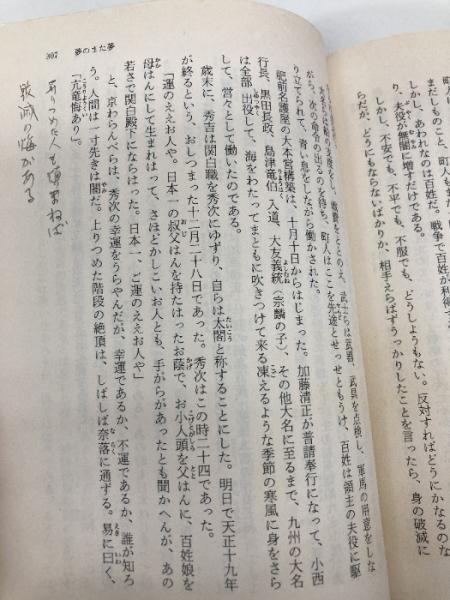 まだしものこと、町人もまた
しかし、あわれなのは百姓だ。戦争で百姓が利得する
り、夫役が無闇に増すだけである。
しかし、不安でも、不平でも、不服でも、どうしようもない。反対すればどうにかなるのな
らだが、どうにもならないばかりか、相手えらばずうっかりしたことを言ったら、身の破滅に
307 夢のまた夢
の支度をし、戦費をととのえ、武士らは武器、武具を点検し、軍馬の用意をしな
がら、次の命令の出るのを待ち、町人はここを先途とせっせともうけ、百姓は領主の夫役に駆
り立てられて、青い息をしながら働かされた。
肥前名護屋の大本営構築は、十月十日からはじまった。加藤清正が普請奉行になって、小西
行長、黒田長政、島津竜伯入道、大友義統(宗麟の子)、その他大名に至るまで、九州の大名
は全部出役して、海をわたってまともに吹きつけて来る凍えるような季節の寒風に身をさら
して、営々として働いたのである。
歳末に、秀吉は関白職を秀次にゆずり、自らは太閤と称することにした。明日で天正十九年
が終るという、おしつまった十二月二十八日であった。秀次はこの時二十四であった。
「運のええお人や。日本一の叔父はんを持たはったお蔭で、お小人頭を父はんに、百姓娘を
母はんにして生まれはって、さほどかしこいお人とも、手がらがあったとも聞かへんが、あの
若さで関白殿下にならはった。日本一、ご運のええお人や」
と、京わらんべらは、秀次の幸運をうらやんだが、幸運であるか、不運であるか、誰が知ろ
う。人間は一寸先きは闇だ。上りつめた階段の絶頂は、しばしば奈落に通ずる。易に曰く、
「亢竜悔あり」
昇りつめた人も慎まねば
敗滅の悔がある